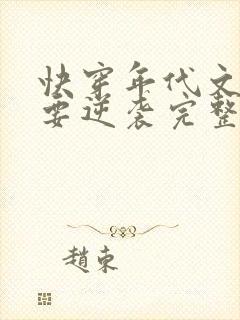 快穿年代文
要逆袭完整
趙東